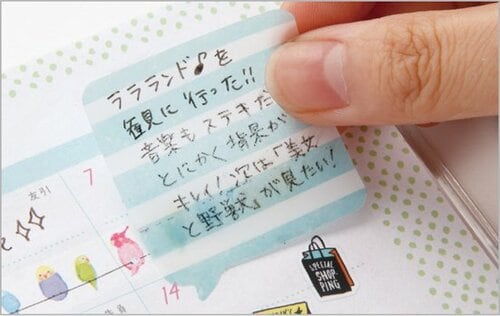 ララランド♪を
観に行った!!
音楽もステキだ
とにかく背景が
キレイ!次は『美女
と野獣』が見たい!
友引
7
と
14
SPECIAL
SHOP
PING